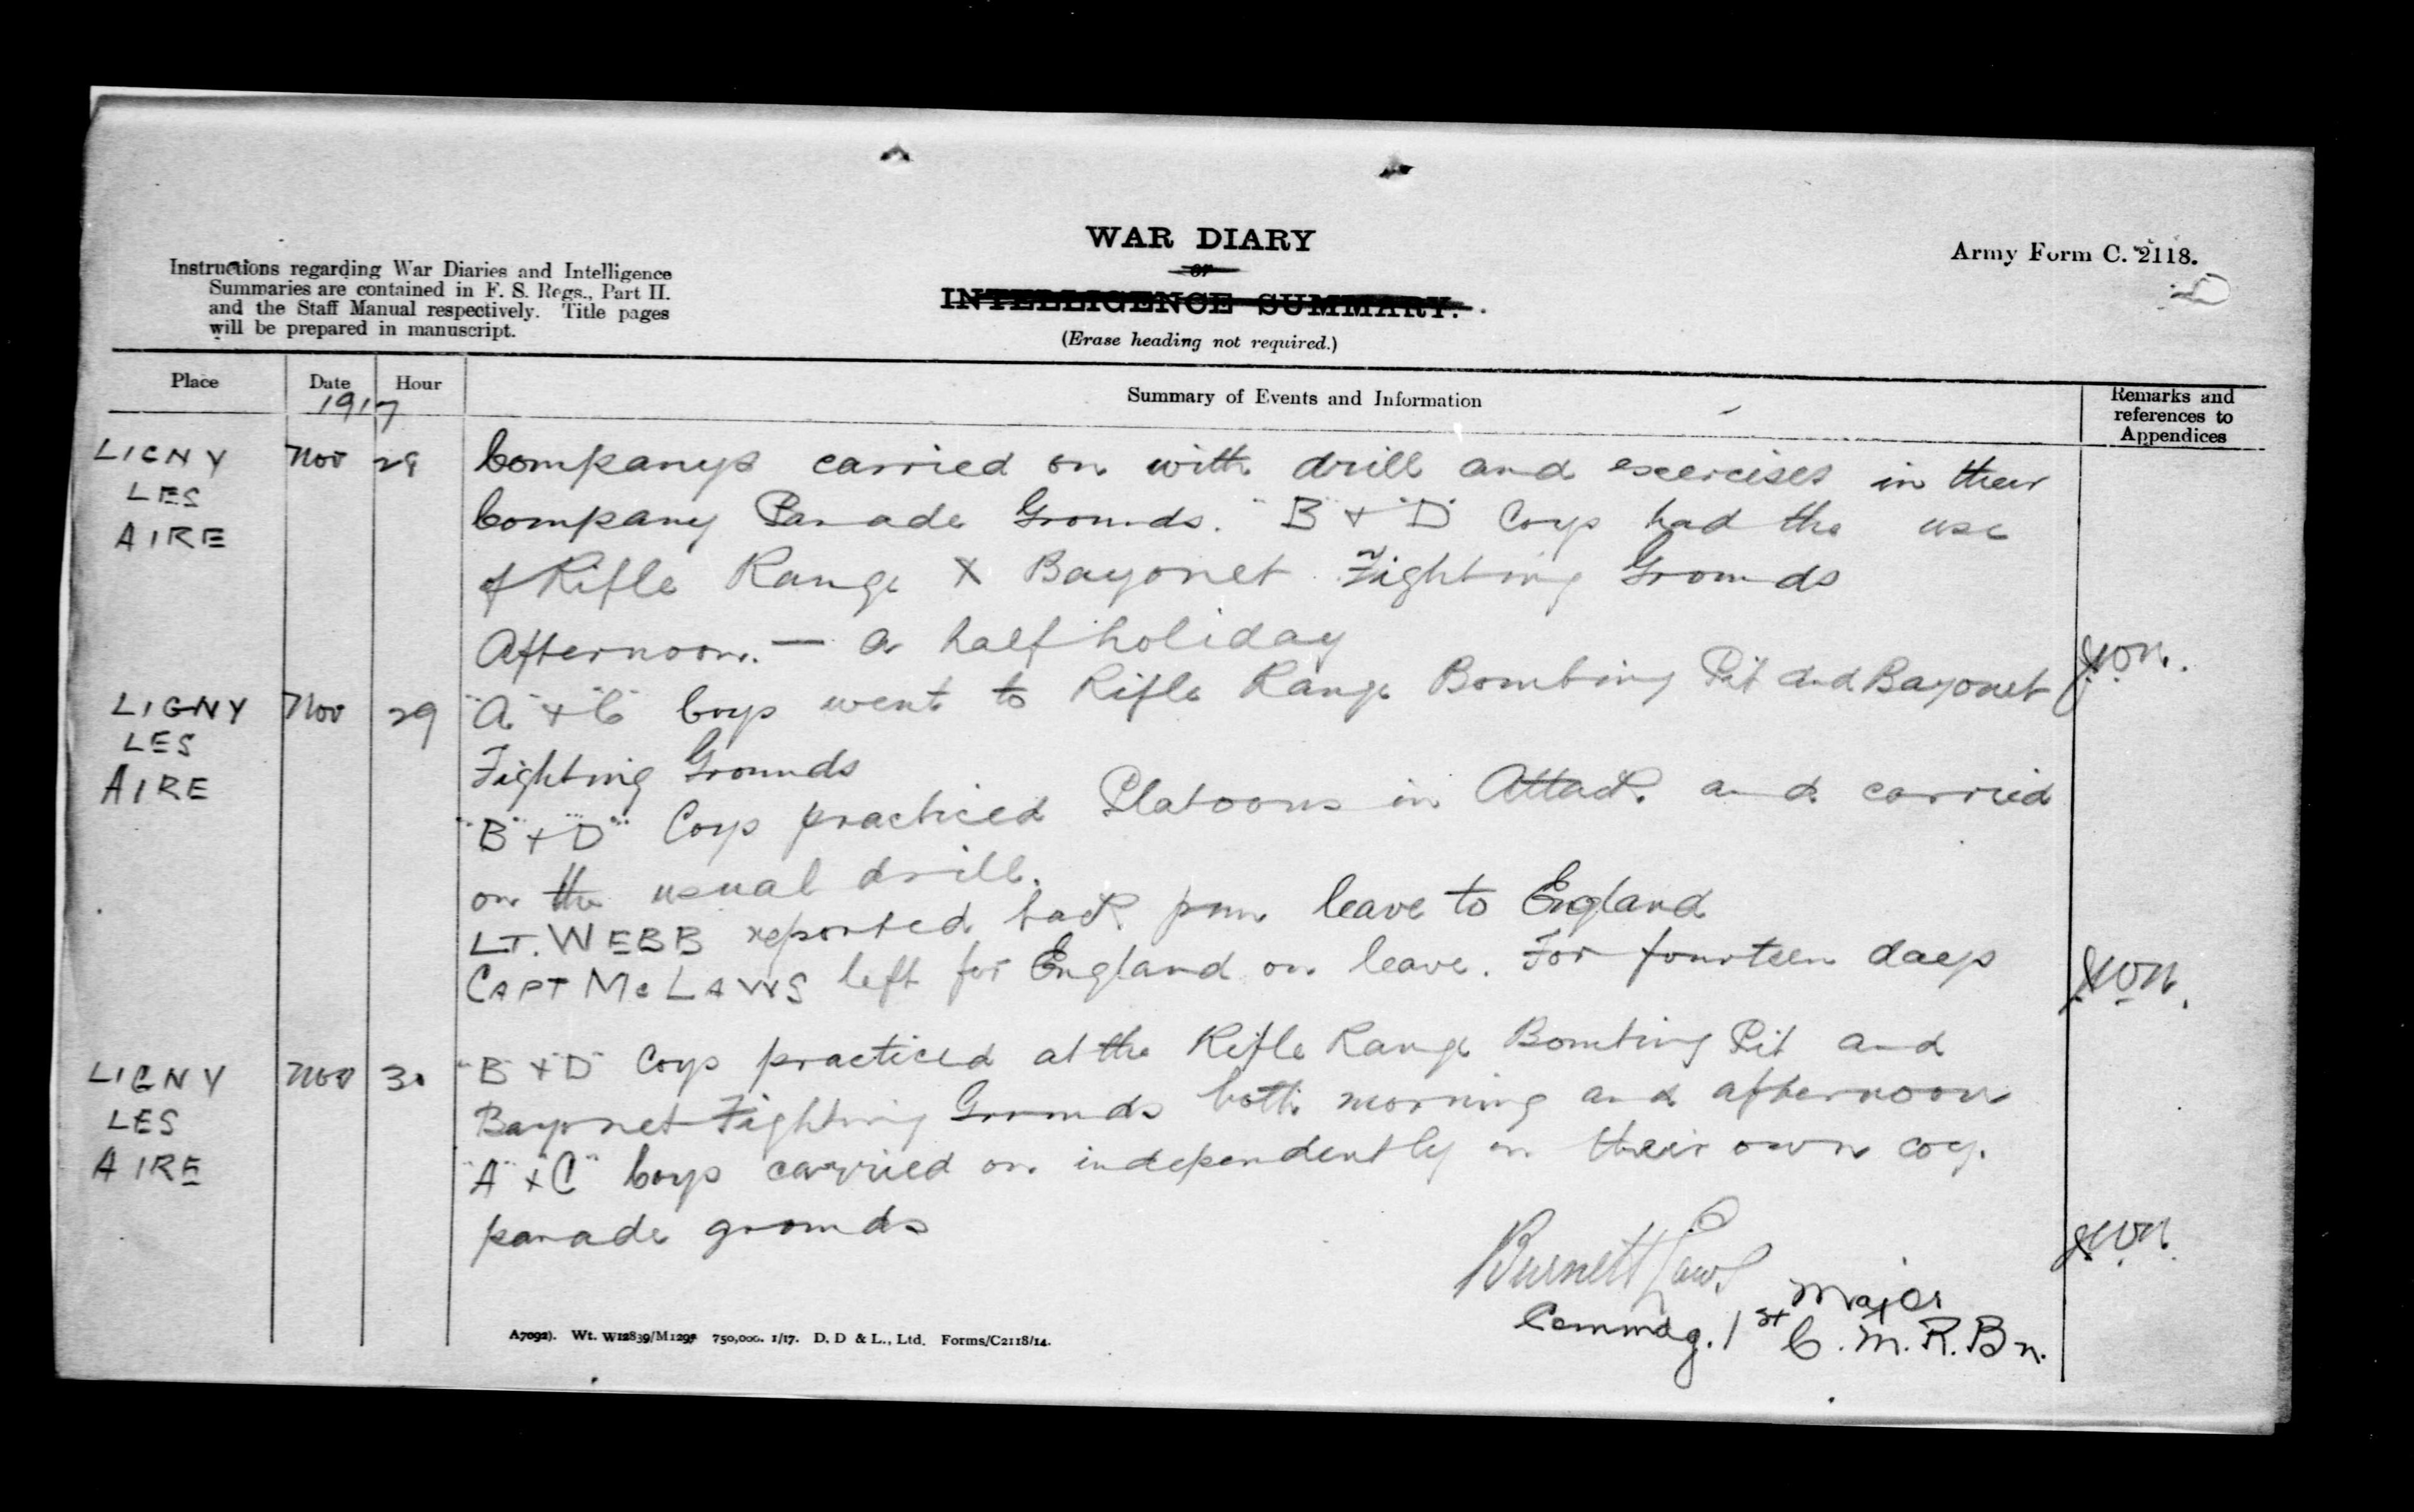 WAR DIARY
or
INTELLIGENCE SUMMARY.
(Erase heading not required.)
Army Form C. 2118.
Instructions regarding War Diaries and Intelligence
Summaries are contained in F. S. Regs., Part II.
and the Staff Manual respectively. Title pages
will be prepared in manuscript.
Place Date Hour Summary of Events and Information Remarks and references to Appendices
1917
LIGNY LES AIRE Nov 28 Companys carried on with drill and exercises in their
Company Parade Grounds. "B" + "D" Coys had the use
of Rifle Range & Bayonet Fighting Grounds
Afternoon. — a half holiday
LIGNY LES AIRE Nov 29 "A" + "C" Coys went to Rifle Range Bombing Pit and Bayonet
Fighting Grounds
"B" + "D" Coys practiced Platoons in Attack and carried
on the usual drill.
LT. WEBB reported back from leave to England
CAPT McLAWS left for England on leave. For fourteen days
LIGNY LES AIRE Nov 30 "B" + "D" Coys practiced at the Rifle Range Bombing Pit and
Bayonet Fighting Grounds both morning and afternoon
"A" + "C" Coys carried on independently on their own coy.
parade grounds
Burnett Laws Major
Commdg. 1st C.M.R. Bn.
A7092). Wt. W12839/M1297 750,000. 1/17. D. D & L., Ltd. Forms/C2118/14.